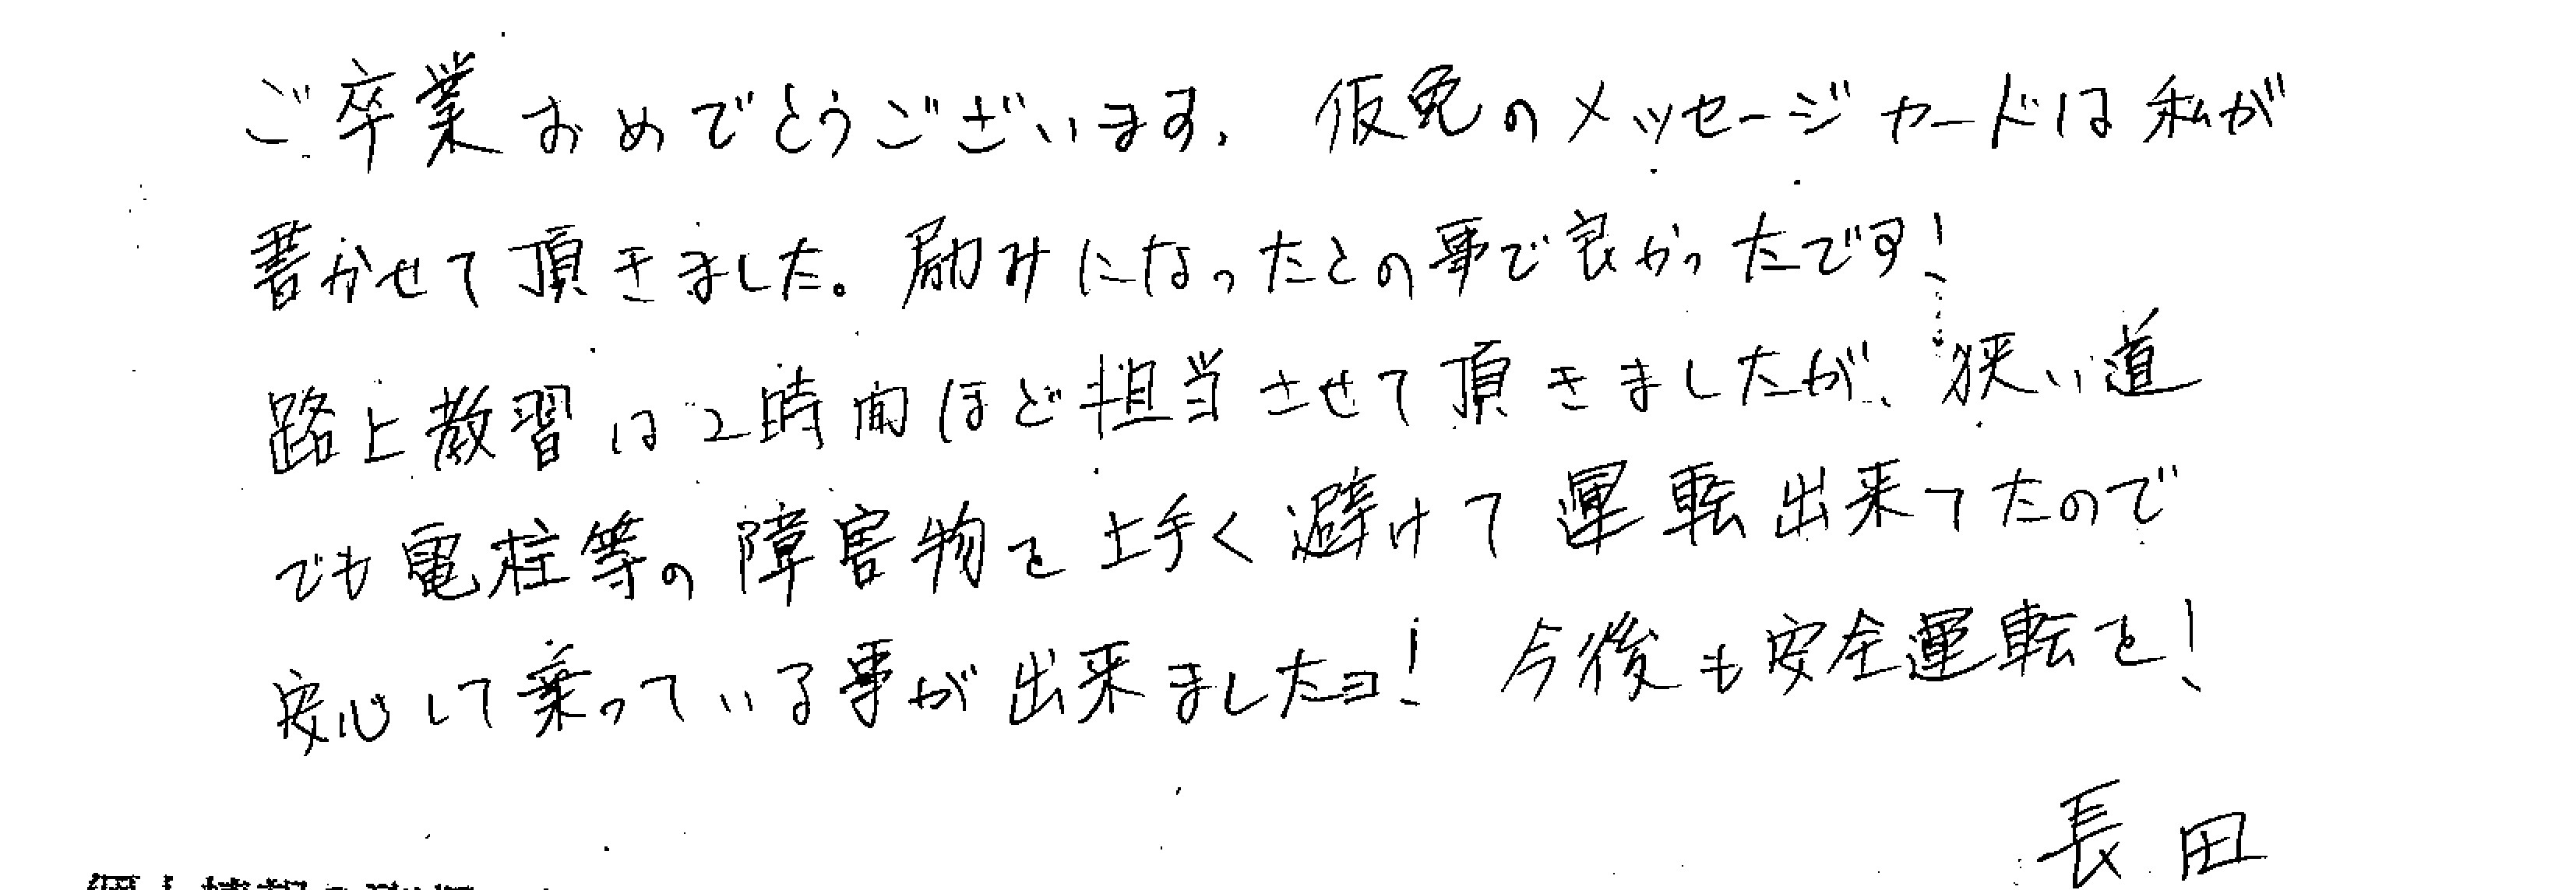 ご卒業おめでとうございます。仮免のメッセージカードは私が
書かせて頂きました。励みになったとの事で良かったです!
路上教習は2時間ほど担当させて頂きましたが、狭い道
でも電柱等の障害物を上手く避けて運転出来てたので
安心して乗っている事が出来ましたヨ! 今後も安全運転を!
長田